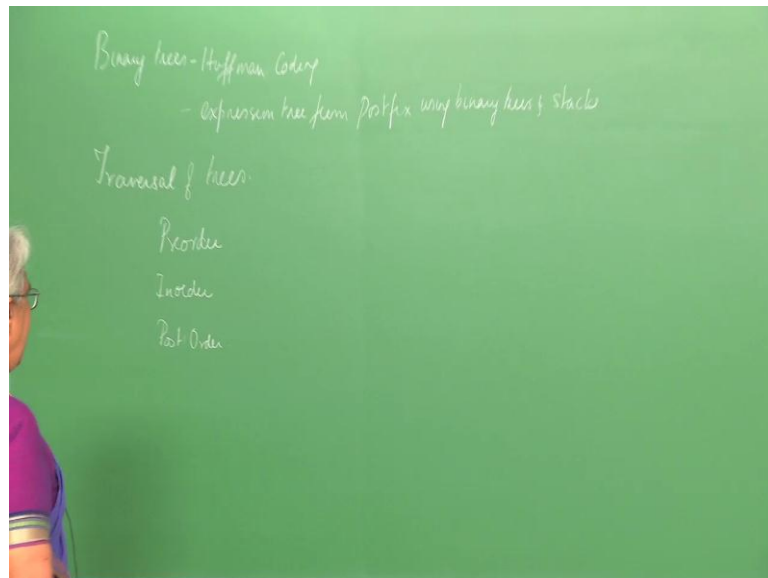 Binary trees - Huffman Coding
- expression tree from Postfix using binary trees & stack
Traversal of trees.
Preorder
Inorder
Post Order